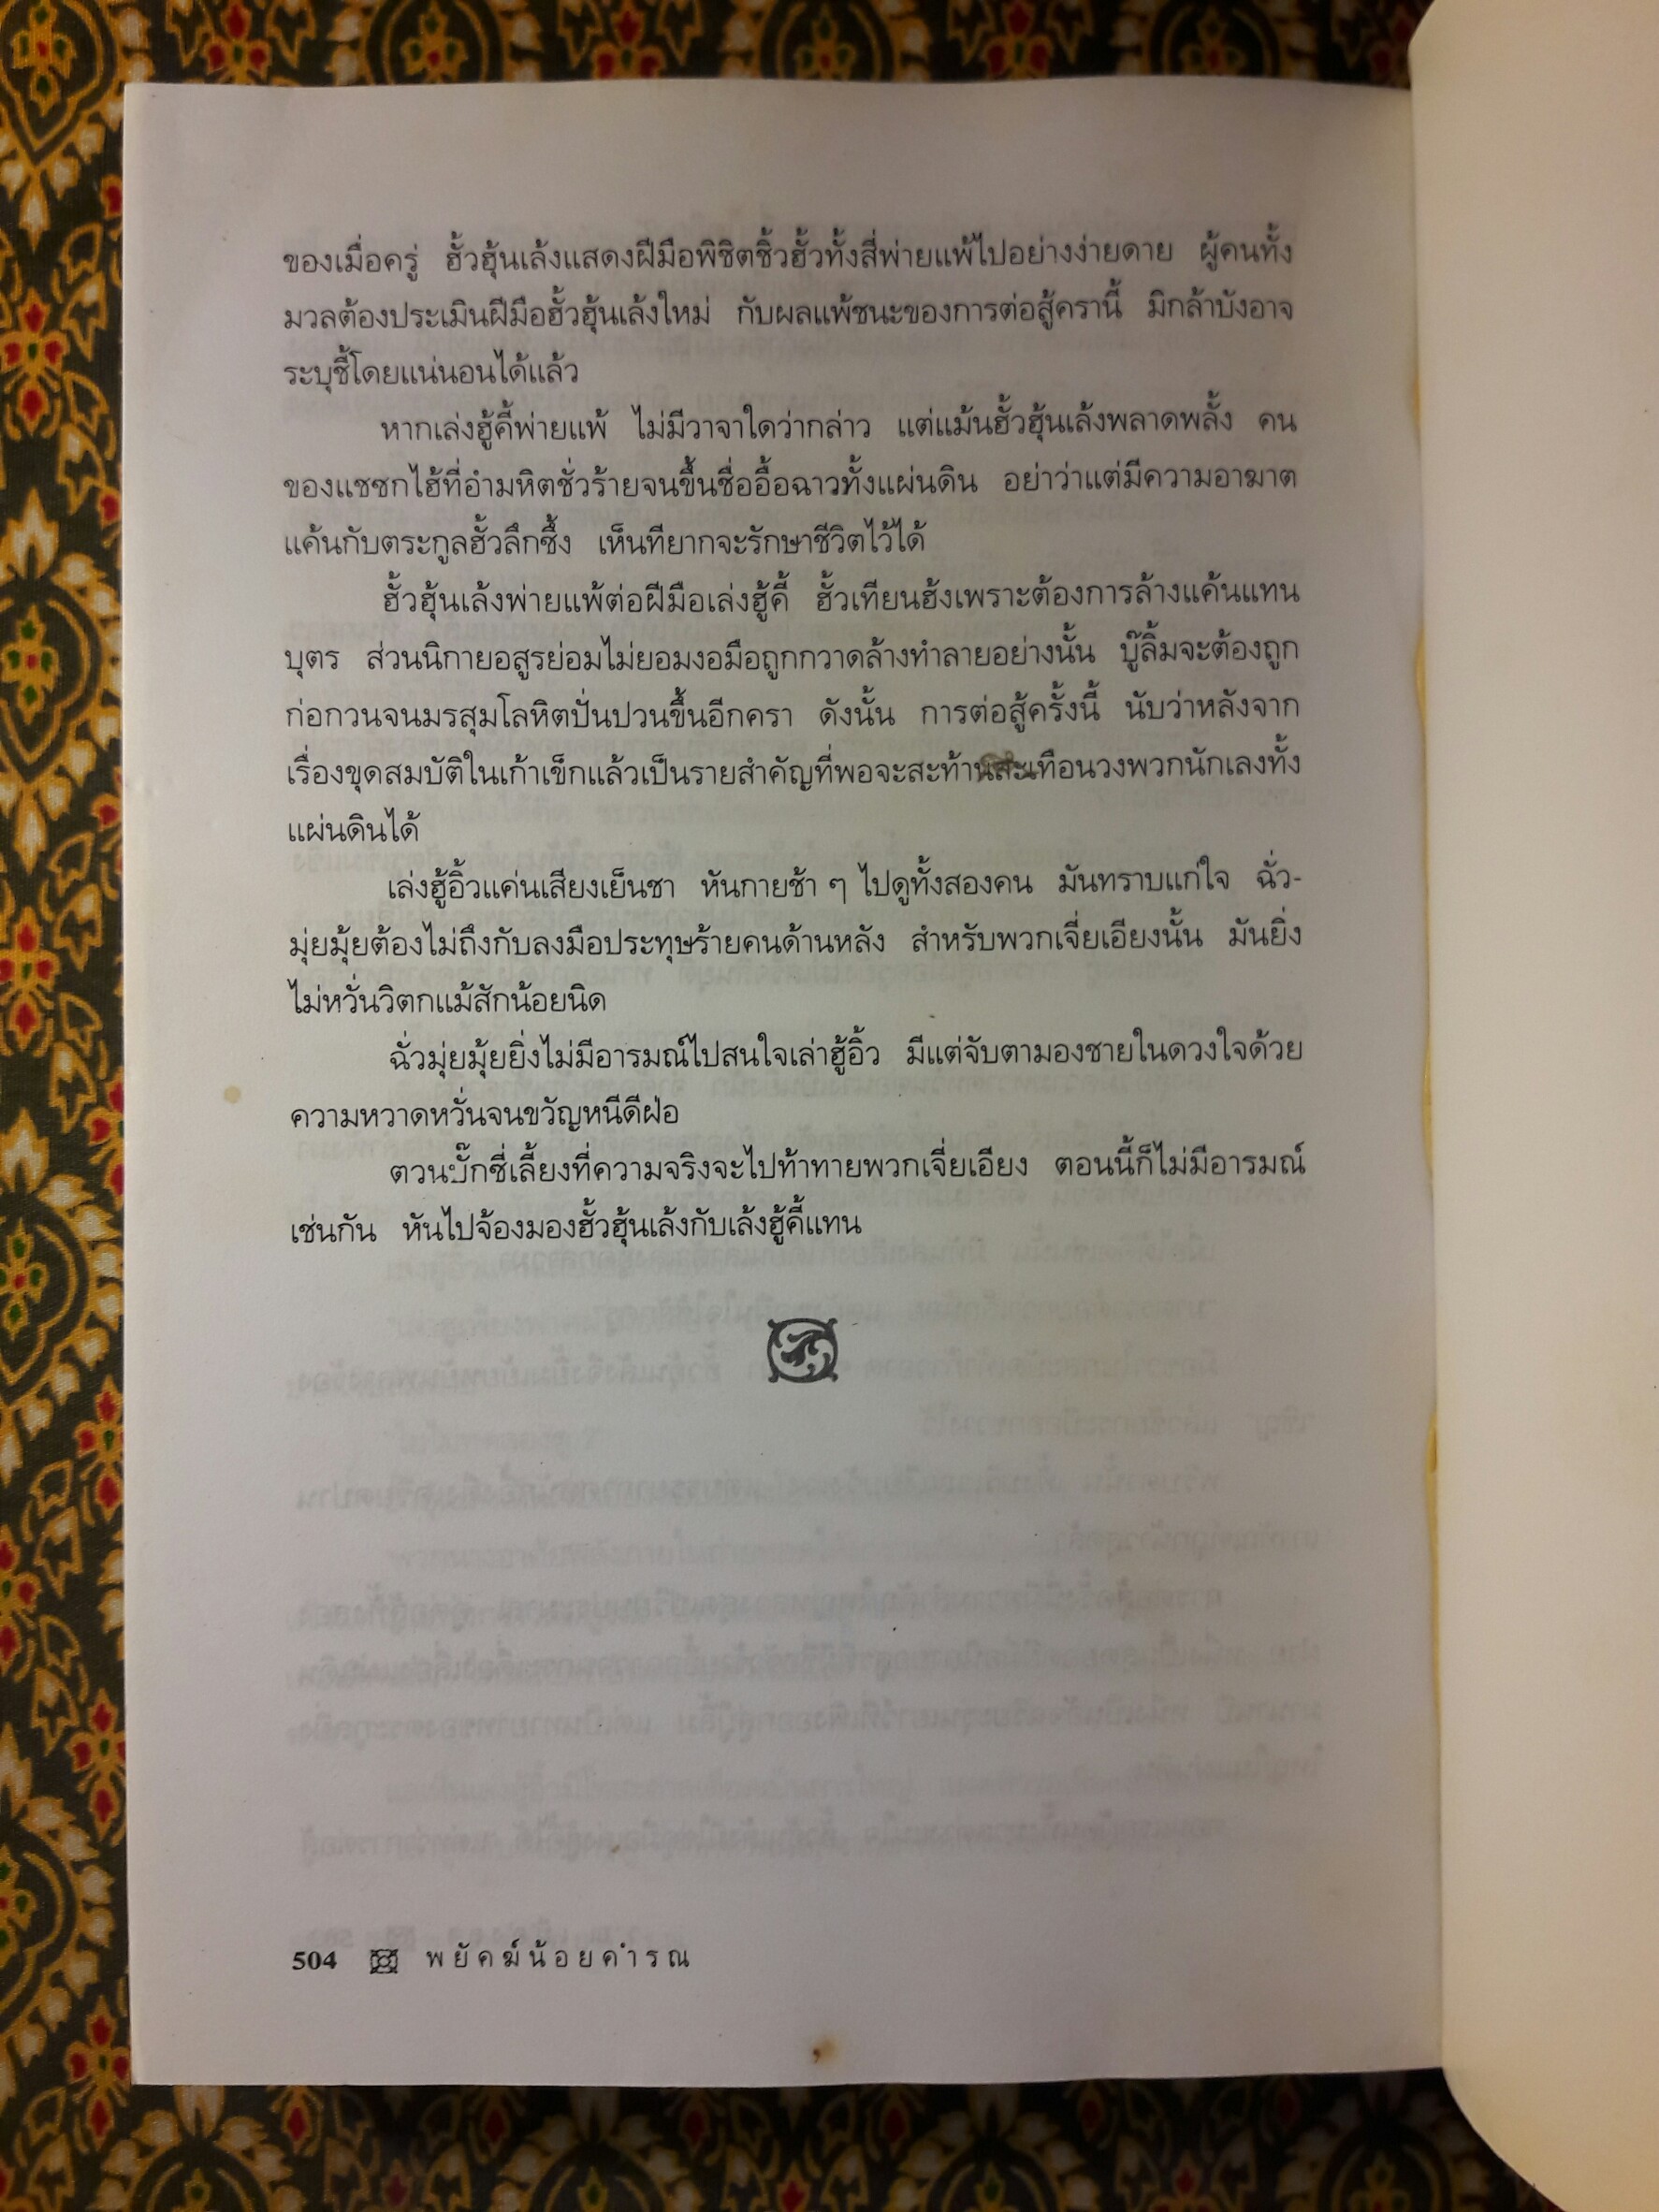 ของเมื่อครู่ ฮั้วฮุ้นเล้งแสดงฝีมือพิชิตชิ้วฮั้วทั้งสี่พ่ายแพ้ไปอย่างง่ายดาย ผู้คนทั้ง
มวลต้องประเมินฝีมือฮั้วฮุ้นเล้งใหม่ กับผลแพ้ชนะของการต่อสู้ครานี้ มิกล้าบังอาจ
ระบุชี้โดยแน่นอนได้แล้ว
หากเล่งฮู้คี้พ่ายแพ้ ไม่มีวาจาใดว่ากล่าว แต่แม้นฮั้วฮุ้นเล้งพลาดพลั้ง คน
ของแชซกไฮ้ที่อำมหิตชั่วร้ายจนขึ้นชื่ออื้อฉาวทั้งแผ่นดิน อย่าว่าแต่มีความอาฆาต
แค้นกับตระกูลฮั้วลึกซึ้ง เห็นทียากจะรักษาชีวิตไว้ได้
ฮั้วฮุ้นเล้งพ่ายแพ้ต่อฝีมือเล่งฮู้คี้ ฮั้วเทียนฮ้งเพราะต้องการล้างแค้นแทน
บุตร ส่วนนิกายอสูรย่อมไม่ยอมงอมือถูกกวาดล้างทำลายอย่างนั้น บู๊ลิ้มจะต้องถูก
ก่อกวนจนมรสุมโลหิตปั่นปวนขึ้นอีกครา ดังนั้น การต่อสู้ครั้งนี้ นับว่าหลังจาก
เรื่องขุดสมบัติในเก้าเข็กแล้วเป็นรายสำคัญที่พอจะสะท้านสะเทือนวงพวกนักเลงทั้ง
แผ่นดินได้
เล่งฮู้อิ้วแค่นเสียงเย็นชา หันกายช้า ๆ ไปดูทั้งสองคน มันทราบแก่ใจ ฉั่ว-
มุ่ยมุ้ยต้องไม่ถึงกับลงมือประทุษร้ายคนด้านหลัง สำหรับพวกเจี่ยเอียงนั้น มันยิ่ง
ไม่หวั่นวิตกแม้สักน้อยนิด
ฉั่วมุ่ยมุ้ยยิ่งไม่มีอารมณ์ไปสนใจเล่าฮู้อิ้ว มีแต่จับตามองชายในดวงใจด้วย
ความหวาดหวั่นจนขวัญหนีดีฝ่อ
ตวนบั๊กชี่เลี้ยงที่ความจริงจะไปท้าทายพวกเจี่ยเอียง ตอนนี้ก็ไม่มีอารมณ์
เช่นกัน หันไปจ้องมองฮั้วฮุ้นเล้งกับเล้งฮู้คี้แทน
504 พยัคฆ์น้อยคำรณ